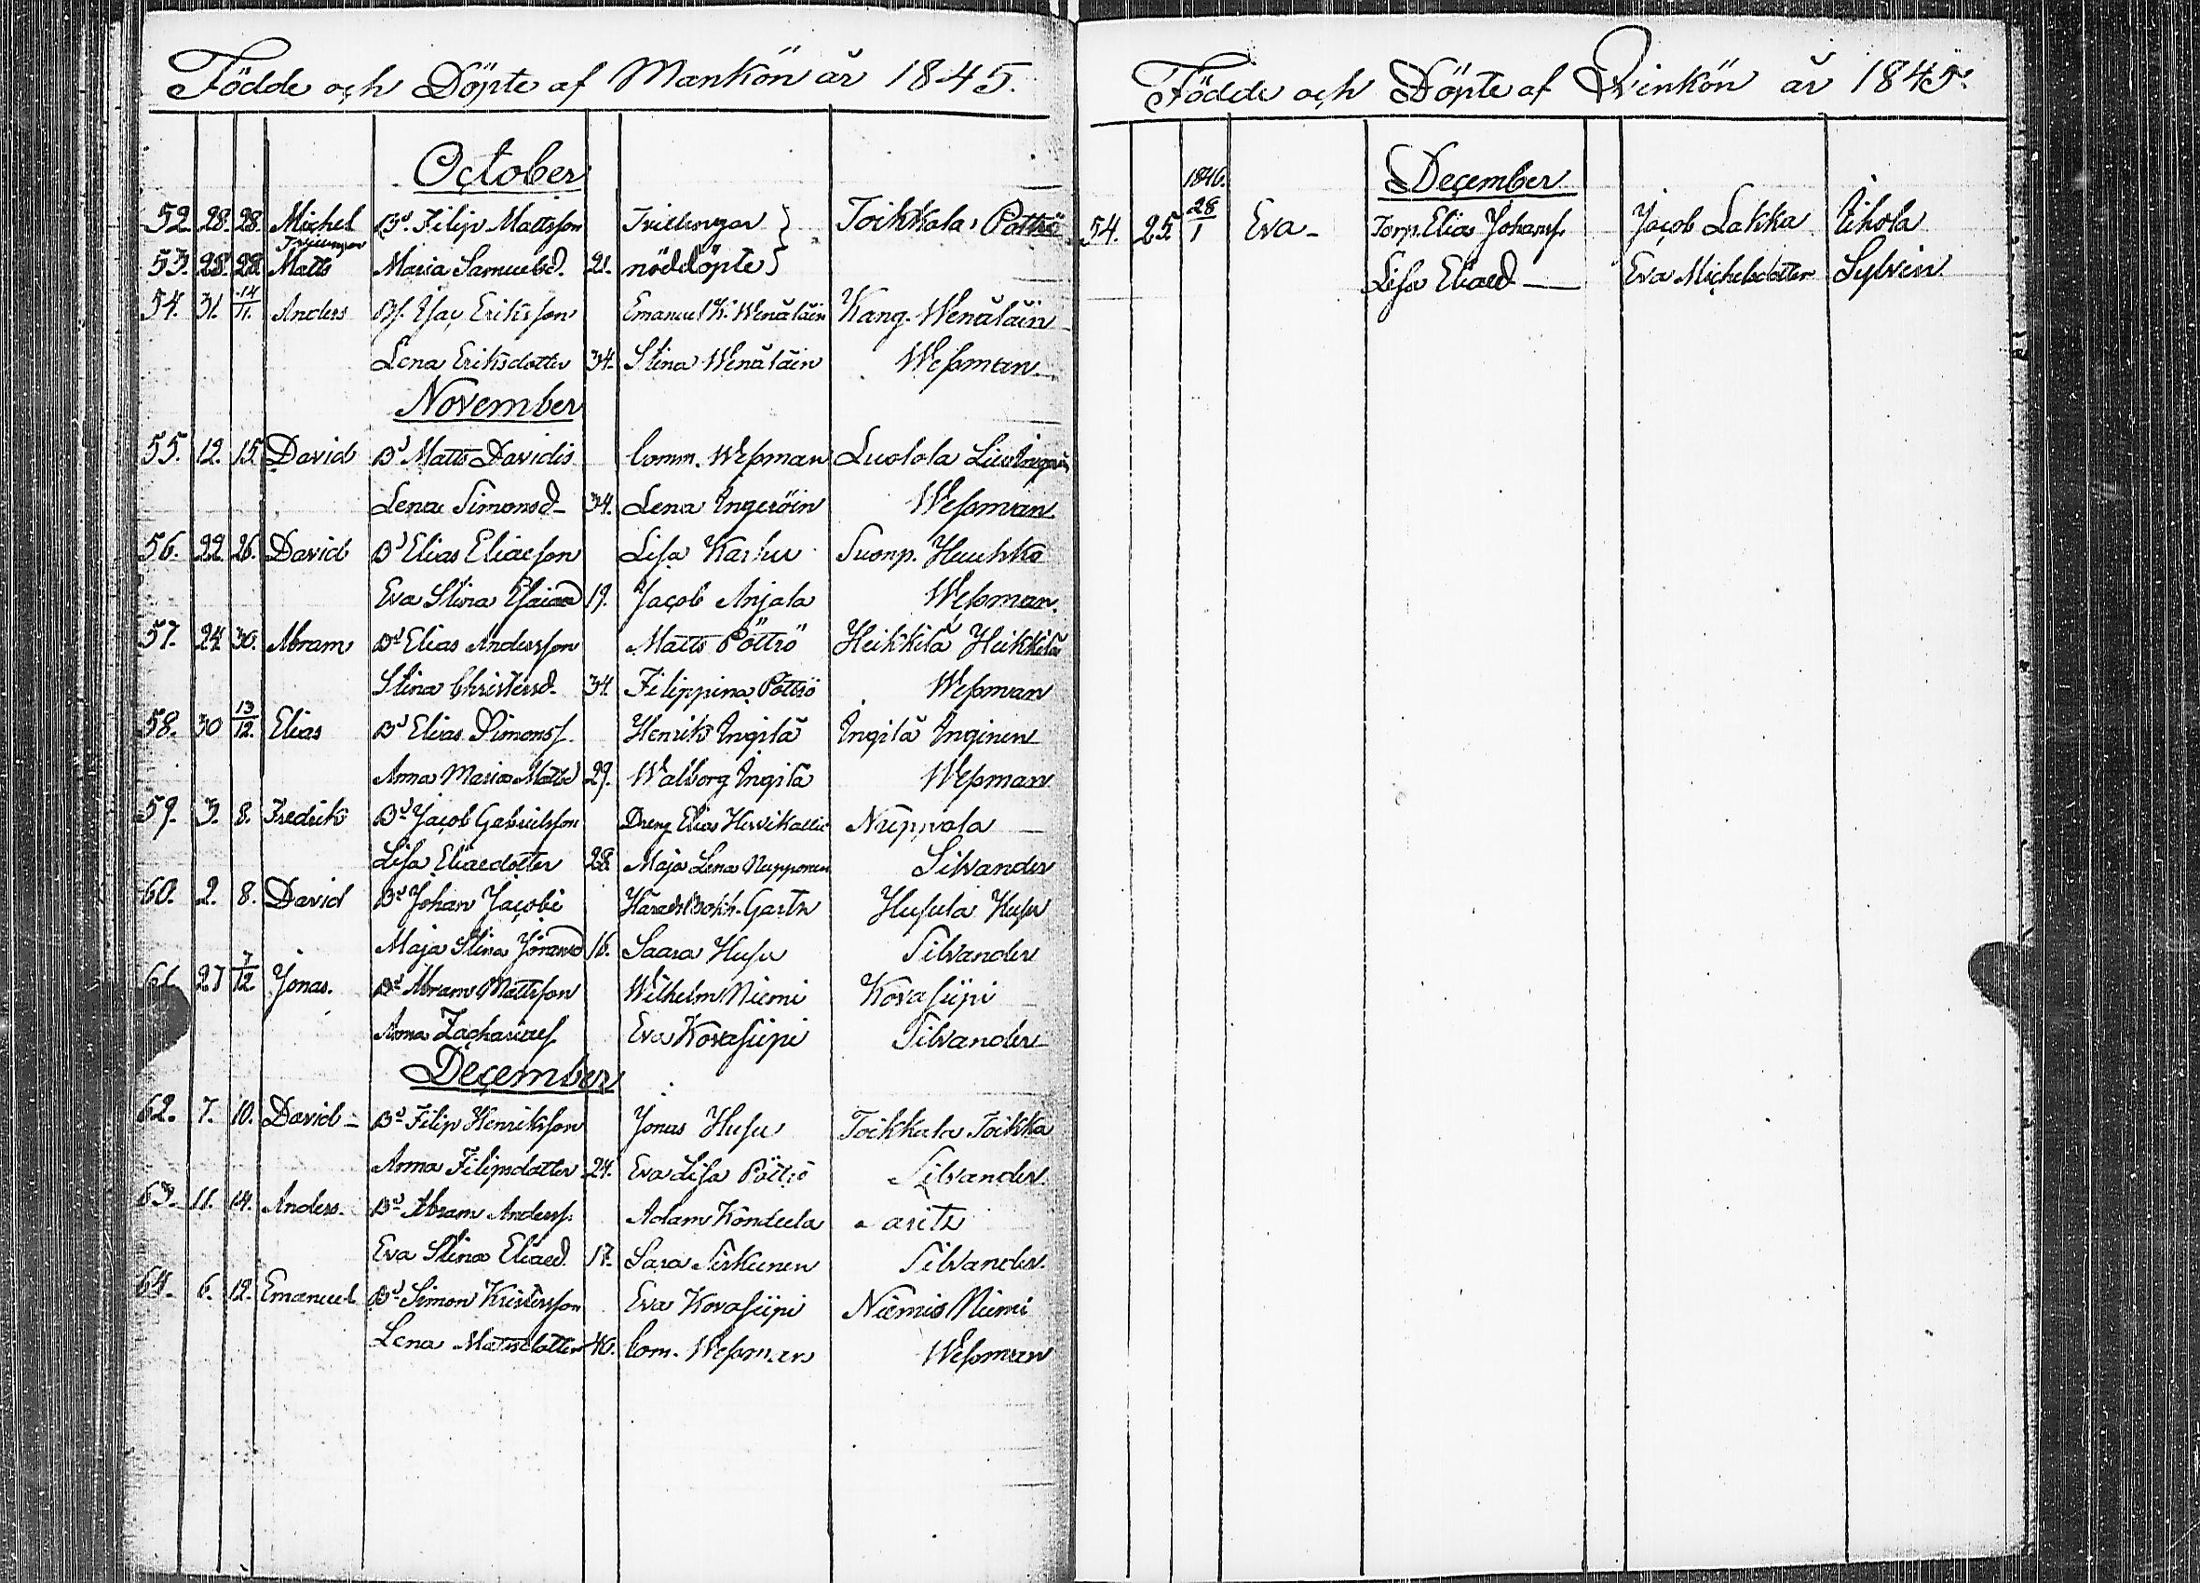 Födde och Döpte af Mankön år 1845.
October
52. 28. 28. Michel Bd. Filip Mattsson Tvillingar } Toikkala, Pöttrö
Tvillingar
53. 28. 28. Matts Maria Samuelsd. 21. nöddöpte }
54. 31. 14/11. Anders Isac Eriksson Emanuel K. Wenäläin Kang. Wenäläin
Lena Eriksdotter 34. Stina Wenäläin Wessman
November
55. 12. 15. David Bd Matts Davidis Comm. Wessman Luotola
Lena Simonsd 34. Lena Ingeröin Wessman
56. 22. 26. David Bd Elias Eliaesson Lisa Karhu Suonp. Huuhka
Eva Stina Esaiaed 19. Jacob Anjala Wessman.
57. 24. 30. Abram Bd Elias Andersson Matts Pöttrö Heikkilä Heikkilä
Stina Christersd. 34. Filippina Pöttrö Wessman
58. 30 13/12. Elias Bd Elias Simonss. Henrik Ingilä Ingilä Inginen
Anna Maria Mattsd 29. Walborg Ingilä Wessman
59. 3. 8. Fredrik Bd Jacob Gabrielsson Dreng Elias Hirvikallio Nuppola
Lisa Eliaedotter 28. Maja Lena Nupponen Silvander
60. 2. 8. David Bd Johan Jacobi Garth Husula Husu
Maja Stina Jönaned 16. Saara Husu Silvander
61. 27 7/12 Jonas. Bd Abram Mattsson Wilhelm Niemi Kovasiipi
Anna Zachariaes. Eva Kovasiipi Silvander
December
62. 7. 10. David Bd Filip Henriksson Jonas Husu Toikkala Toikka
Anna Filipsdotter 24. Eva Lisa Pöttrö Silvander.
63. 11. 14. Anders. Bd Abram Anderss. Adam Konttila
Eva Stina Eliaed. 17. Sara Sirkunen Silvander.
64. 6. 12. Emanuel Bd Simon Kristersson Eva Kovasiipi Niemis Niemi
Lena Mattsdotter 40. Com. Wessman Wessman
Födde och Döpte af Qvinkön år 1845.
December
1846.
54. 25 28/1 Eva Torp. Elias Johanss. Jacob Lakka Uhola
Lisa Eliaed Eva Michelsdotter Sylvin